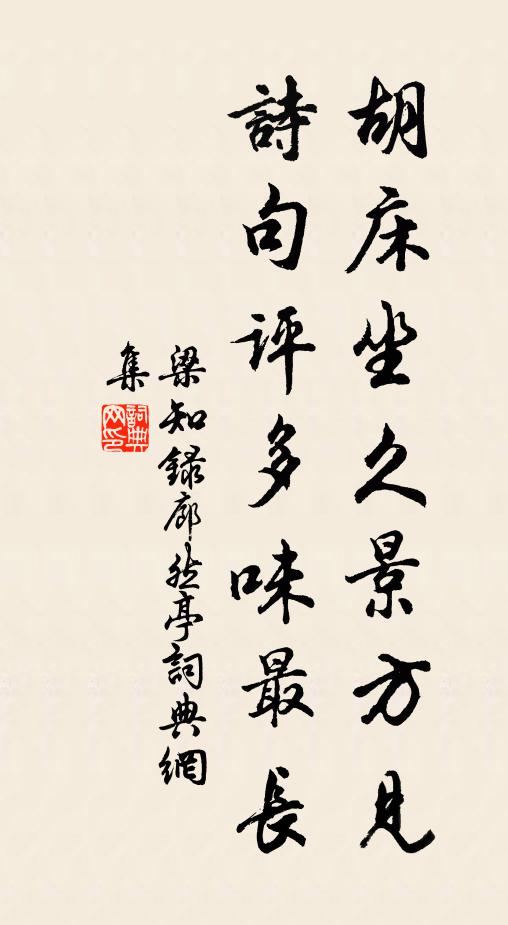 胡床坐久景方見
詩句評多味最長
梁知録廊然亭詞典網
集
詞典網印